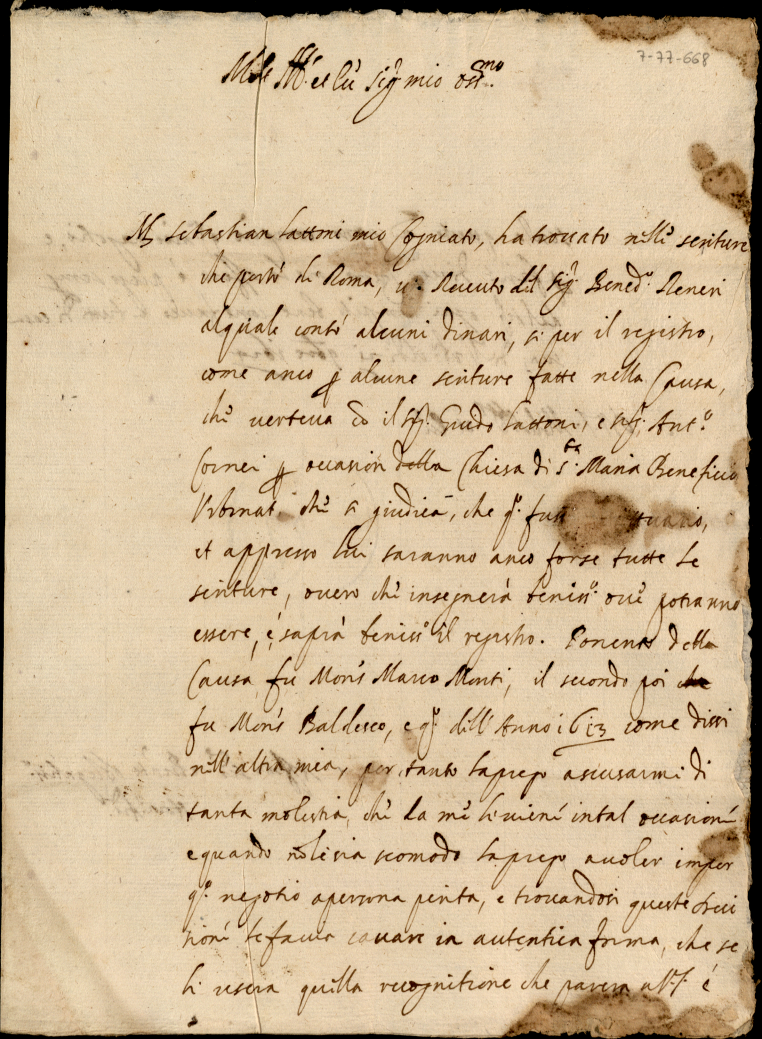 7-77-668
Sig.r mio oss.mo
M. Sebastian mio Cogniato, ha trovato nelle scritture
che portò di Roma, un Receuto del Sig.r Bened.o Reneri
al quale contò alcuni dinari, si per il registro,
come anco p alcune scritture fatte nella Causa,
che verteva il Sig.r Guido e Sig.r Ant.o
p occasion della Chiesa di S.ta Maria Beneficio
che si giudica, che q.o
et appresso lui saranno anco forse tutte le
scritture, overo che insegnerà beniss.o ove potranno
essere, e saprà beniss.o il registro. Ponente della
Causa fu Mons.r Marco Monti, il secondo poi
fu Mons.r Baldesco, e q.o dell'Anno 1613 come dissi
nell'altra mia, per tanto la prego a scusarmi di
tanta molestia, che da me li viene in tal occasione
e quando non le sia scomodo la prego a voler
q.o negotio a persona perita, e trovandosi queste Deci
sioni le facia cavare in autentica forma, che se
li userà quella recognitione che parerà a V.S. é